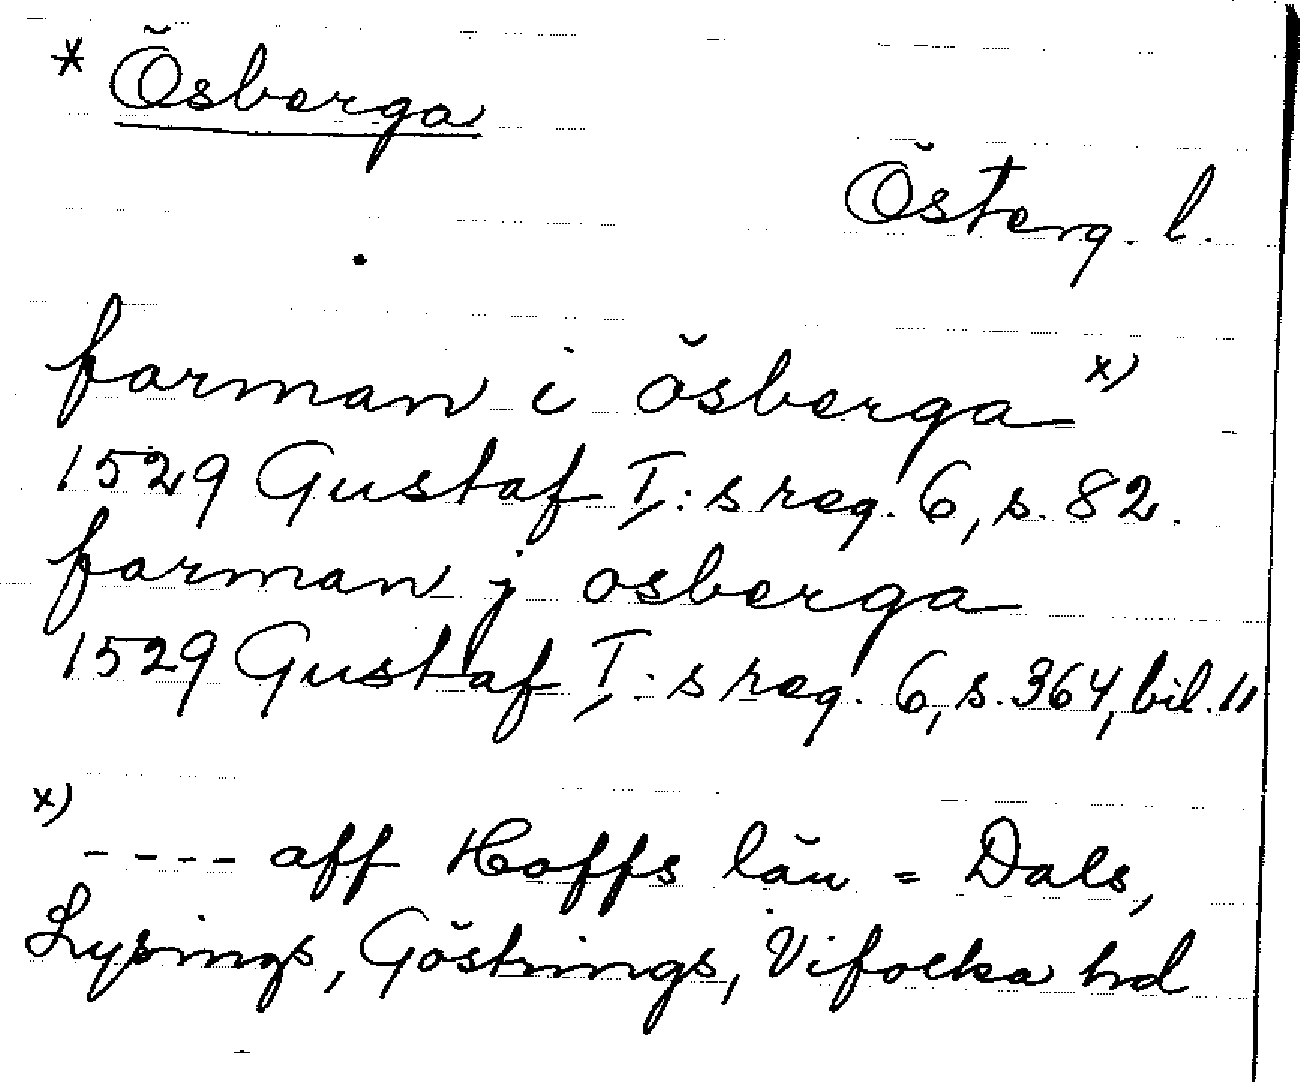 * Ösberga
Österg. l.
farman i ösberga x)
1529 Gustaf I:s reg. 6, s. 82.
farman j osberga
1529 Gustaf I:s reg. 6, s. 364, bil. 11
x)
---- aff Hoffs län = Dals,
Lysings, Göstrings, Vifolka hd